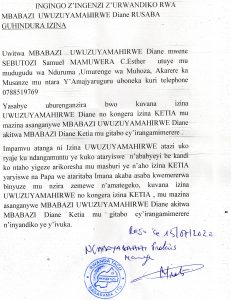 INGINGO Z'INGENZI Z'URWANDIKO RWA
MBABAZI UWUZUYAMAHIRWE Diane RUSABA
GUHINDURA IZINA
Uwitwa MBABAZI UWUZUYAMAHIRWE Diane mwene
SEBUTOZI Samuel MAMUWERA C.Esther utuye mu
mudugudu wa Nduruma ,Umurenge wa Muhoza, Akarere ka
Musanze mu ntara Y'Amajyaruguru uboneka kuri telephone
0788519769
Yasabye uburenganzira bwo kuvana izina
UWUZUYAMAHIRWE Diane no kongera izina KETIA mu
mazina asanganywe MBABAZI UWUZUYAMAHIRWE Diane
akitwa MBABAZI Diane Ketia mu gitabo cy'irangamimerere
Impamvu atanga ni Izina UWUZUYAMAHIRWE atazi uko
ryaje ku ndangamuntu ye kuko ataryiswe n'ababyeyi be kandi
ko ntaho yigeze arikoresha mu mashuri ye n'aho izina KETIA
yaryiswe na Papa we ataritaba Imana akaba asaba kwemererwa
binyuze mu nzira zemewe n'amategeko, kuvana izina
UWUZUYAMAHIRWE no kongera izina KETIA , mu mazina
asanganywe MBABAZI UWUZUYAMAHIRWE Diane akitwa
MBABAZI Diane Ketia mu gitabo cy'irangamimerere
n'inyandiko ze y'ivuka.
15/07/2022